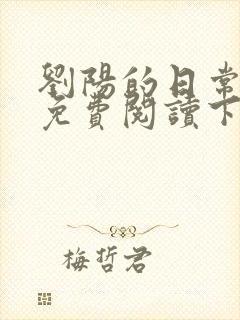 劉陽的日常
免費閱讀下
梅哲君